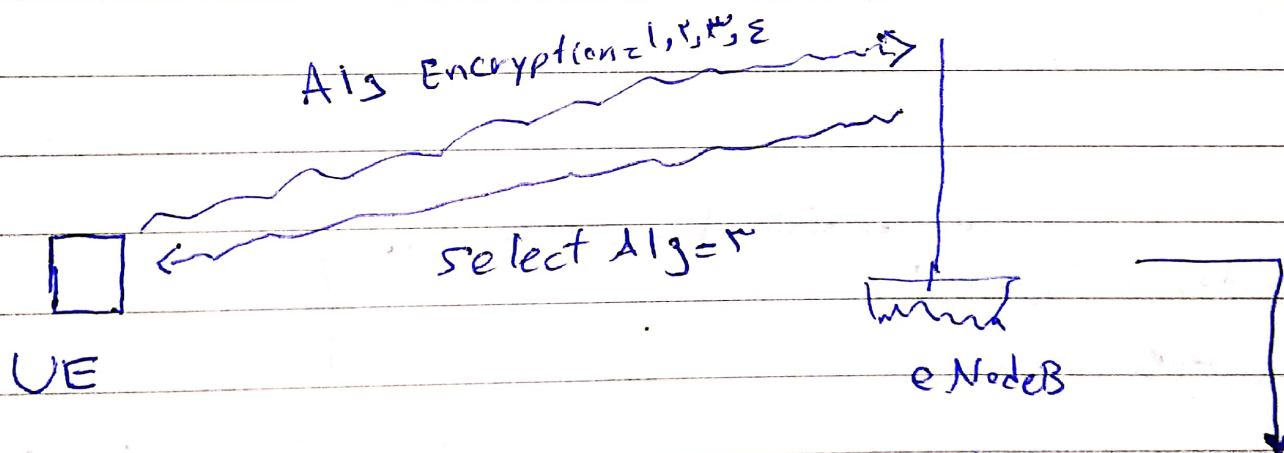 Alg Encryption=١,٢,٣,٤
select Alg=٢
UE
eNodeB